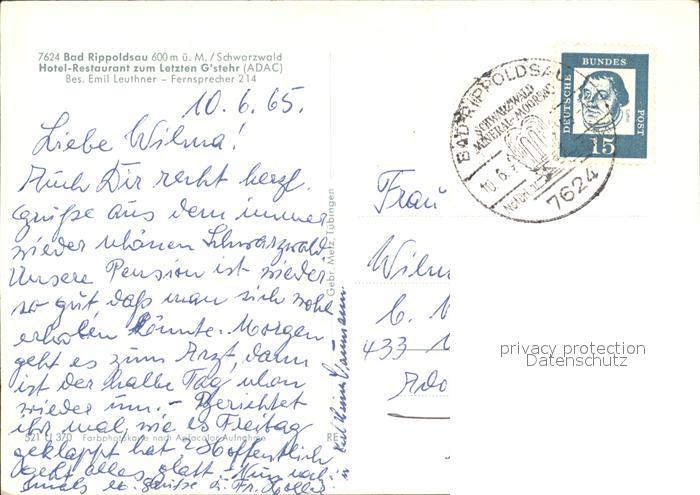 7624 Bad Rippoldsau 600 m ü. M. / Schwarzwald
Hotel-Restaurant zum Letzten G'stehr (ADAC)
Bes. Emil Leuthner – Fernsprecher 214
10. 6. 65.
Liebe Wilma!
Auch Dir recht herzl.
Grüße aus dem immer
wieder schönen Schwarzwald.
Unsere Pension ist wieder
so gut daß man sich wohl
erholen könnte. Morgen
geht es zum Arzt, dann
ist der halbe Tag schon
wieder um. – Berichtet
ihr mal, wie es Freitag
geklappt hat? Hoffentlich
geht alles glatt. – Nun noch-
mals Grüße Fr.
521 U 370 Farbphotokarte nach Agfacolor-Aufnahme
Gebr. Metz, Tübingen
BAD RIPPOLDSAU
SCHWARZWALD
MINERAL-MOORBAD
10. 6.
7624
DEUTSCHE BUNDES POST
15
Frau
433
privacy protection
Datenschutz